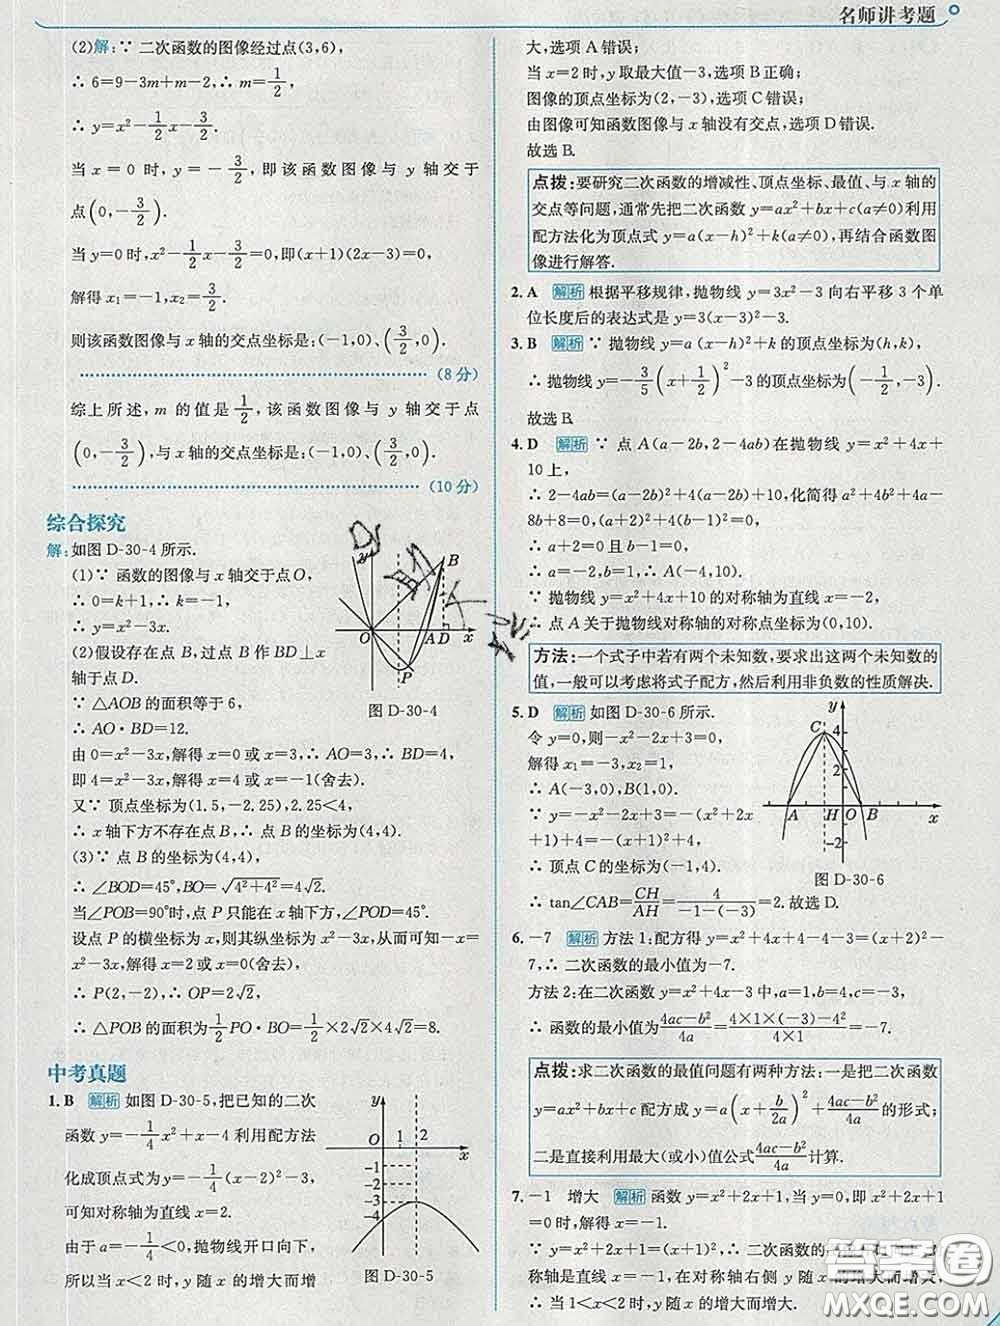 名师讲考题
(2)解:∵ 二次函数的图像经过点(3,6),
∴ 6=9-3m+m-2,∴ m=1/2,
∴ y=x²-1/2x-3/2.
当 x=0 时,y=-3/2,即该函数图像与 y 轴交于
点(0,-3/2).
当 y=0 时,x²-1/2x-3/2=0,即(x+1)(2x-3)=0,
解得 x₁=-1,x₂=3/2.
则该函数图像与 x 轴的交点坐标是:(-1,0),(3/2,0).
(8 分)
综上所述,m 的值是1/2,该函数图像与 y 轴交于点
(0,-3/2),与 x 轴的交点坐标是:(-1,0),(3/2,0).
(10 分)
综合探究
解:如图 D-30-4 所示.
(1)∵ 函数的图像与 x 轴交于点 O,
∴ 0=k+1,∴ k=-1,
∴ y=x²-3x.
(2)假设存在点 B,过点 B 作 BD⊥x
轴于点 D.
∵ △AOB 的面积等于 6,
∴ AO·BD=12.
y
B
O
A
D
x
P
图 D-30-4
由 0=x²-3x,解得 x=0 或 x=3,∴ AO=3,∴ BD=4,
即 4=x²-3x,解得 x=4 或 x=-1(舍去).
又∵ 顶点坐标为(1.5,-2.25),2.25<4,
∴ x 轴下方不存在点 B,∴ 点 B 的坐标为(4,4).
(3)∵ 点 B 的坐标为(4,4),
∴ ∠BOD=45°,BO=√4²+4²=4√2.
当∠POB=90°时,点 P 只能在 x 轴下方,∠POD=45°.
设点 P 的横坐标为 x,则其纵坐标为 x²-3x,从而可知-x=
x²-3x,解得 x=2 或 x=0(舍去).
∴ P(2,-2),∴ OP=2√2.
∴ △POB 的面积为1/2PO·BO=1/2×2√2×4√2=8.
中考真题
1. B 解析 如图 D-30-5,把已知的二次
函数 y=-1/4x²+x-4 利用配方法
化成顶点式为 y=-1/4(x-2)²-3,
可知对称轴为直线 x=2.
由于 a=-1/4<0,抛物线开口向下,
所以当 x<2 时,y 随 x 的增大而增
y
O
1
2
x
-1
-2
-3
-4
图 D-30-5
大,选项 A 错误;
当 x=2 时,y 取最大值-3,选项 B 正确;
图像的顶点坐标为(2,-3),选项 C 错误;
由图像可知函数图像与 x 轴没有交点,选项 D 错误.
故选 B.
点拨:要研究二次函数的增减性、顶点坐标、最值、与 x 轴的
交点等问题,通常先把二次函数 y=ax²+bx+c(a≠0)利用
配方法化为顶点式 y=a(x-h)²+k(a≠0),再结合函数图
像进行解答.
2. A 解析 根据平移规律,抛物线 y=3x²-3 向右平移 3 个单
位长度后的表达式是 y=3(x-3)²-3.
3. B 解析 ∵ 抛物线 y=a(x-h)²+k 的顶点坐标为(h,k),
∴ 抛物线 y=-3/5(x+1/2)²-3 的顶点坐标为(-1/2,-3).
故选 B.
4. D 解析 ∵ 点 A(a-2b,2-4ab)在抛物线 y=x²+4x+
10 上,
∴ 2-4ab=(a-2b)²+4(a-2b)+10,化简得 a²+4b²+4a-
8b+8=0,∴ (a+2)²+4(b-1)²=0,
∴ a+2=0 且 b-1=0,
∴ a=-2,b=1,∴ A(-4,10).
∵ 抛物线 y=x²+4x+10 的对称轴为直线 x=-2,
∴ 点 A 关于抛物线对称轴的对称点坐标为(0,10).
方法:一个式子中若有两个未知数,要求出这两个未知数的
值,一般可以考虑将式子配方,然后利用非负数的性质解决.
5. D 解析 如图 D-30-6 所示.
令 y=0,则-x²-2x+3=0,
解得 x₁=-3,x₂=1,
∴ A(-3,0),B(1,0).
∵ y=-x²-2x+3=-(x²+2x
+1)+4=-(x+1)²+4,
∴ 顶点 C 的坐标为(-1,4).
∴ tan∠CAB=CH/AH=4/(-1-(-3))=2.故选 D.
y
C
4
2
A
H
O
B
x
-2
图 D-30-6
6. -7 解析 方法 1:配方得 y=x²+4x+4-4-3=(x+2)²-
7,∴ 二次函数的最小值为-7.
方法 2:在二次函数 y=x²+4x-3 中,a=1,b=4,c=-3,
∴ 函数的最小值为(4ac-b²)/4a=(4×1×(-3)-4²)/(4×1)=-7.
点拨:求二次函数的最值问题有两种方法:一是把二次函数
y=ax²+bx+c 配方成 y=a(x+b/2a)²+(4ac-b²)/4a 的形式;
二是直接利用最大(或小)值公式(4ac-b²)/4a 计算.
7. -1 增大 解析 函数 y=x²+2x+1,当 y=0,即 x²+2x+1
=0 时,解得 x=-1.
∵ y=x²+2x+1=(x+1)²,∴ 二次函数的
称轴是直线 x=-1,在对称轴右侧 y 随 x 的增大而增大,
∴ 当 1<x<2 时,y 随 x 的增大而增大.
答案圈
MXQE.COM